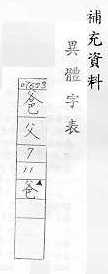 補充資料
異體字表
07603
爸
父
7
11
爸